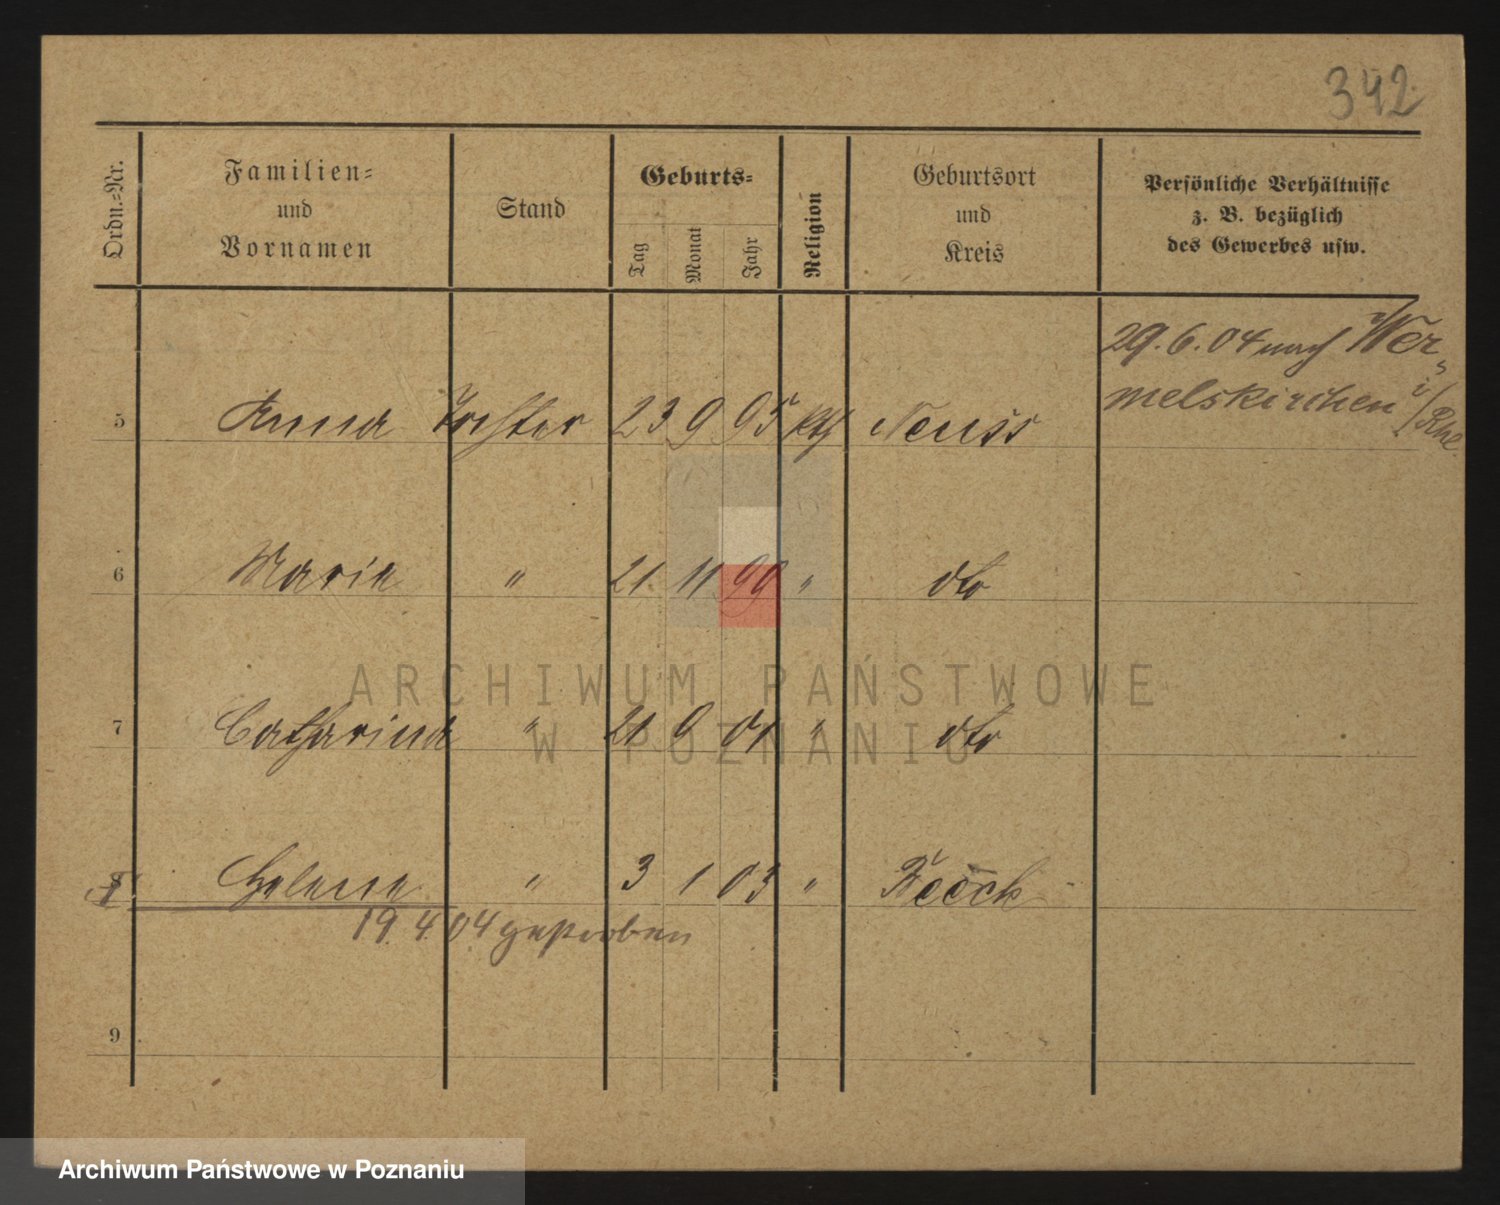 342
Ordn.-Nr. Familien- und Vornamen Stand Geburts- Tag Monat Jahr Religion Geburtsort und Kreis Persönliche Verhältnisse z. B. bezüglich des Gewerbes usw.
29.6.04 nach Wer-
melskirchen i/Rhl.
5 Anna Tochter 23 9 95 kth Neuss
6 Maria " 21 11 99 " dto
7 Catharina " 21 9 01 " dto
8 Helene " 3 1 03 "
19.4.04 gestorben
9
ARCHIWUM PAŃSTWOWE
W POZNANIU
Archiwum Państwowe w Poznaniu